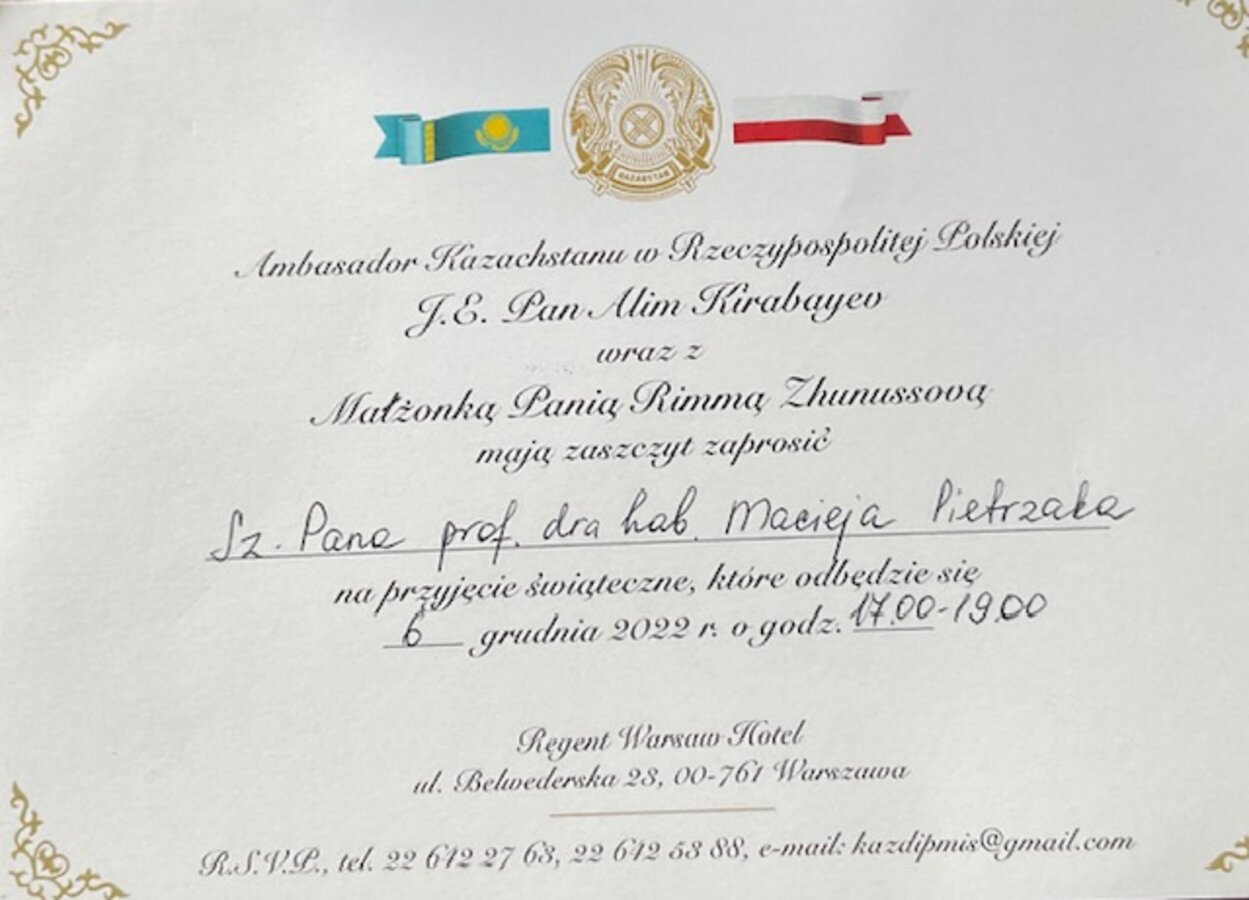 QAZAQSTAN
Ambasador Kazachstanu w Rzeczypospolitej Polskiej
J.E. Pan Alim Kirabayev
wraz z
Małżonką Panią Rimmą Zhunussovą
mają zaszczyt zaprosić
Sz. Pana prof. dra hab. Macieja Pietrzaka
na przyjęcie świąteczne, które odbędzie się
6 grudnia 2022 r. o godz. 17.00-19.00
Regent Warsaw Hotel
ul. Belwederska 23, 00-761 Warszawa
R.S.V.P., tel. 22 642 27 63, 22 642 53 88, e-mail: kazdipmis@gmail.com